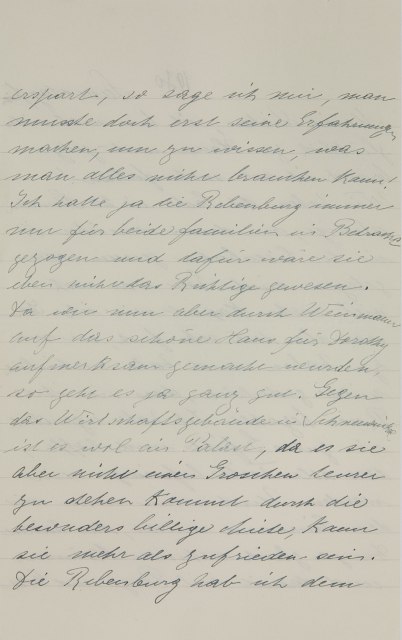 erspart, so sage ich mir, man
musste doch erst seine Erfahrungen
machen, um zu wissen, was
man alles nicht brauchen kann!
Ich hatte ja die Rebenburg immer
nur für beide Familien in Betracht
gezogen und dafür wäre sie
eben nicht das Richtige gewesen.
Da wir nun aber durch Weinmann
auf das schöne Haus für Dorothy
aufmerksam gemacht wurden,
so geht es ja ganz gut. Gegen
das Wirtschaftsgebäude in
ist es wol ein Palast, da es sie
aber nicht einen Groschen teurer
zu stehen kommt durch die
besonders billige Miete, kann
sie mehr als zufrieden sein.
Die Rebenburg hab ich dem